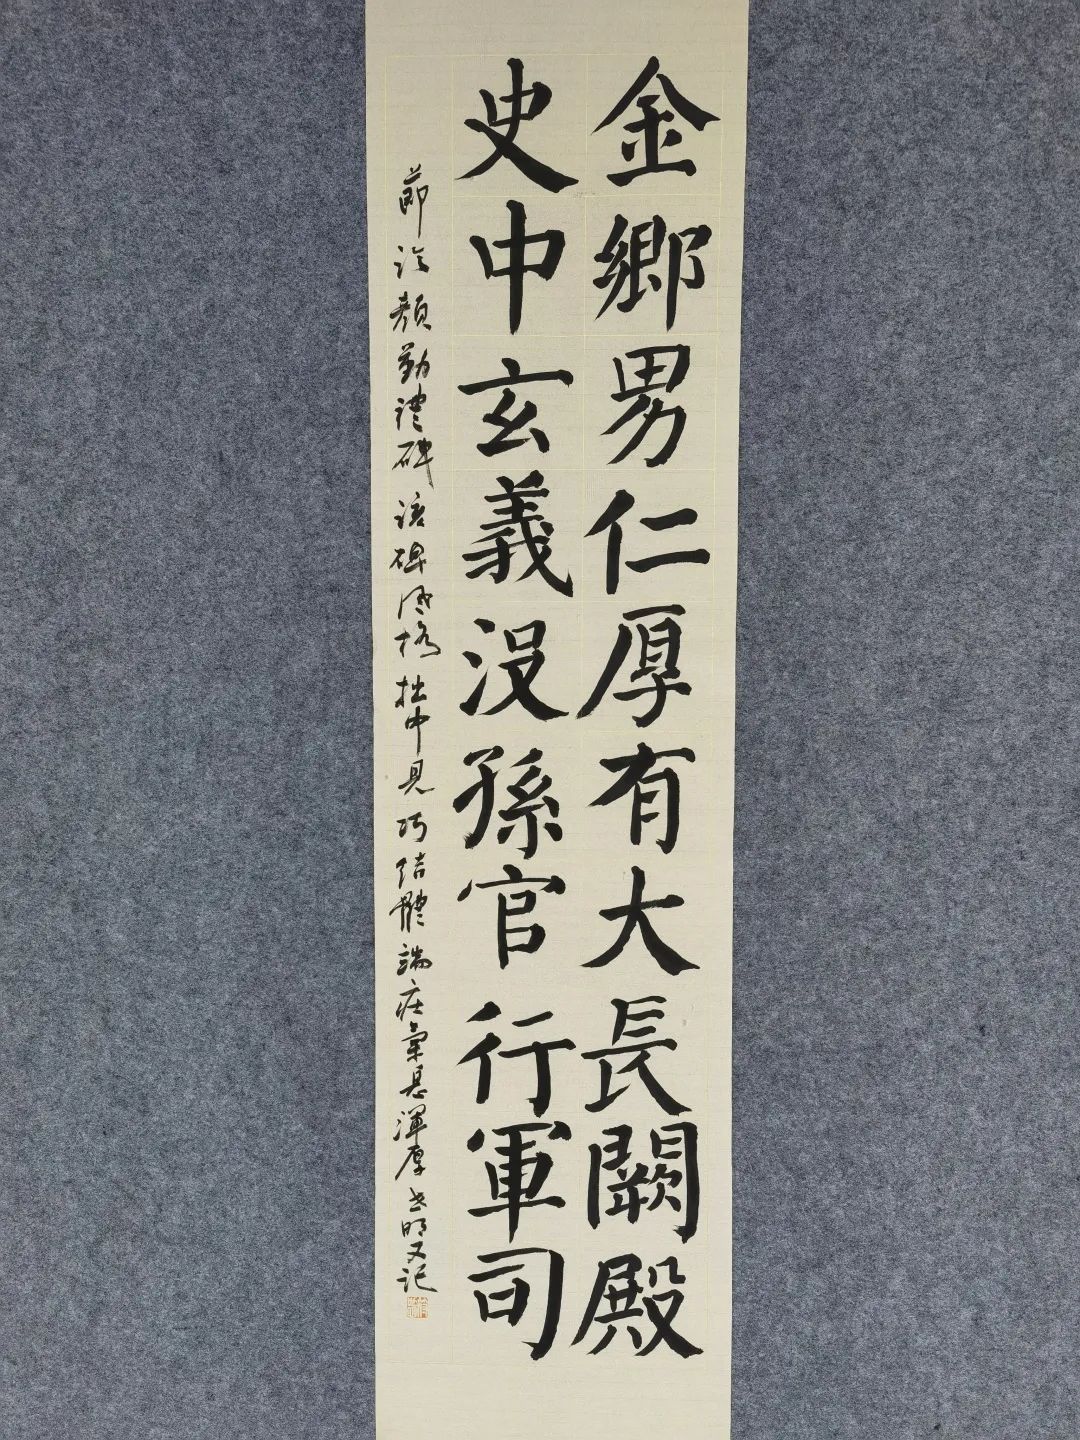 金鄉男仁厚有大長闕殿
史中玄義没孫官行軍司
節臨顏勤禮碑該碑風格拙中見巧結體端莊氣息渾厚志明又記